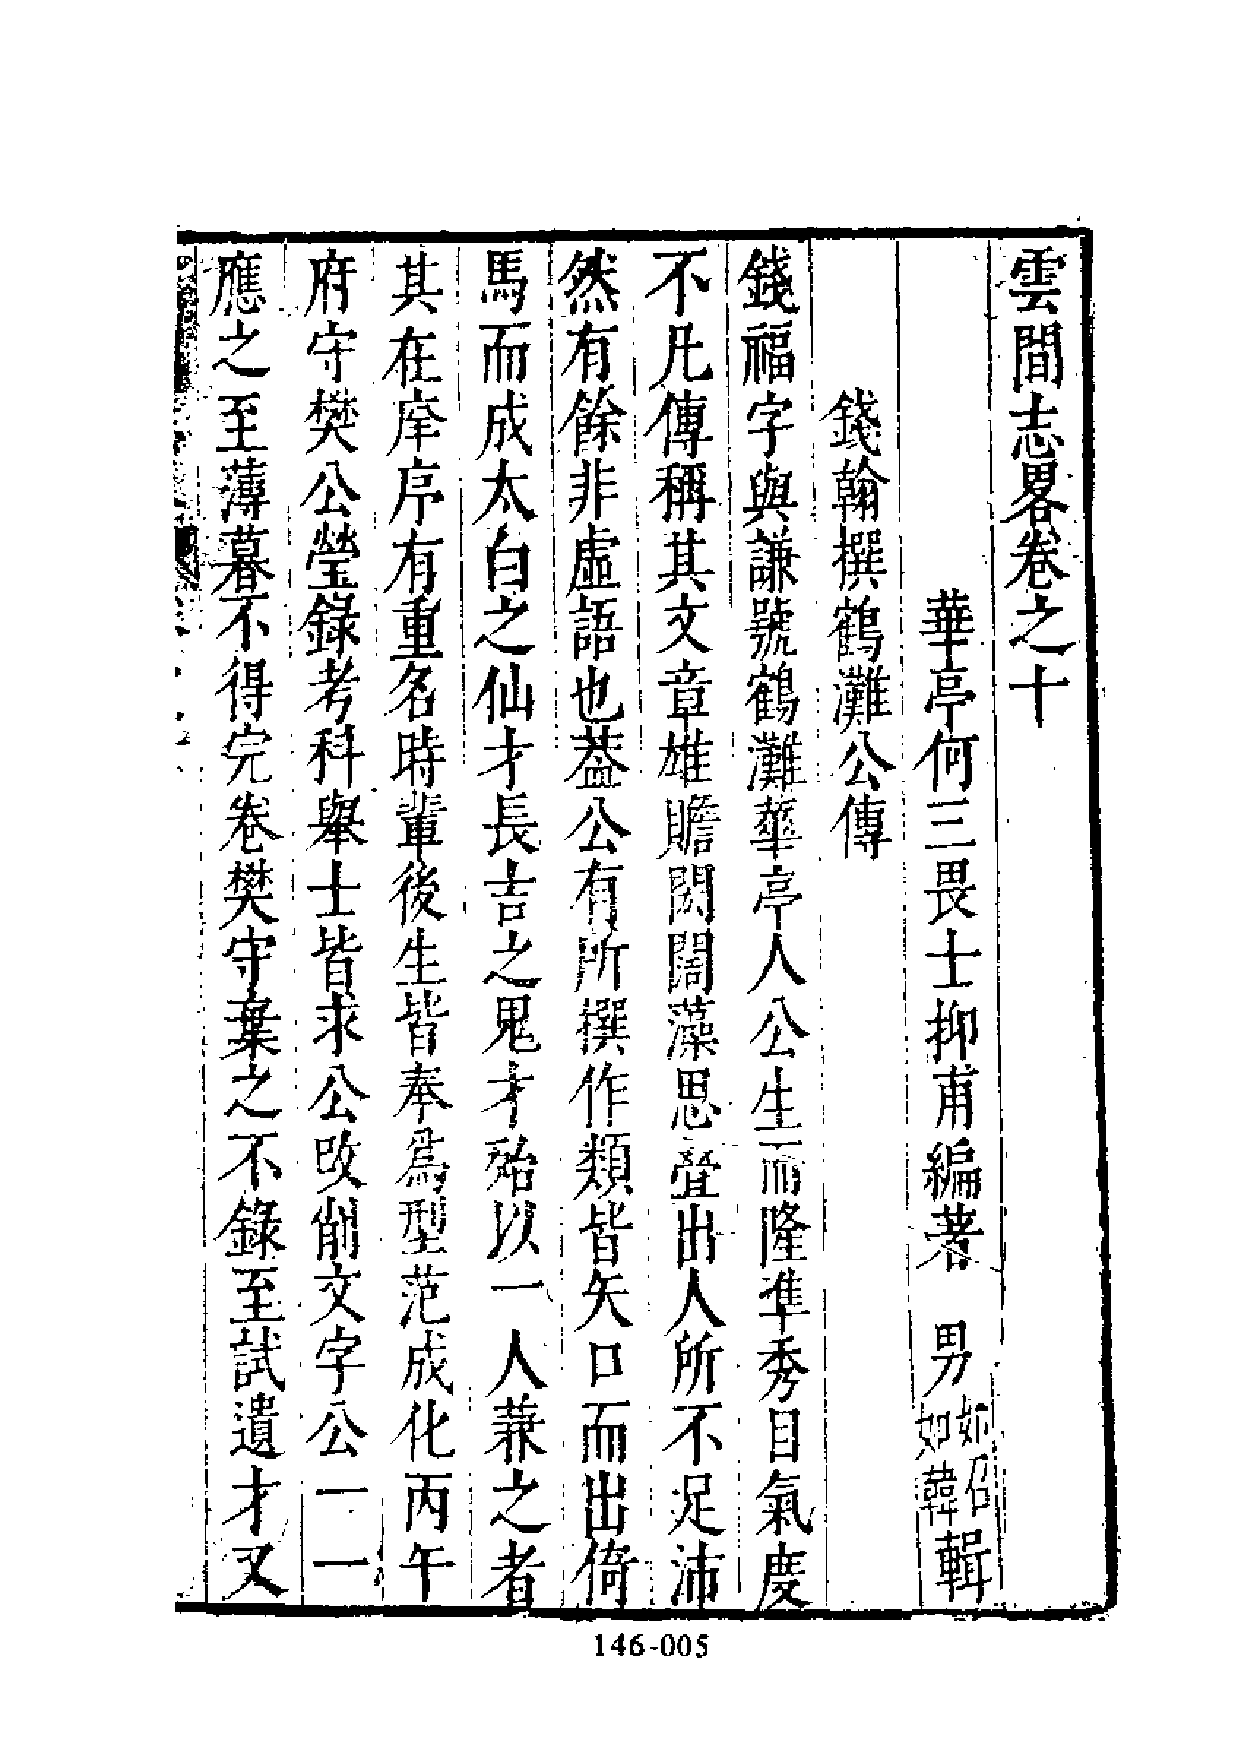 雲間志畧卷之十
華亭何三畏士抑甫編著　男如召如韓輯
錢翰撰鶴灘公傳
錢福字與謙號鶴灘華亭人公生而隆準秀目氣度
不凡傳稱其文章雄贍閎闊藻思疊出人所不足沛
然有餘非虛語也葢公有所撰作類皆矢口而出倚
馬而成太白之仙才長吉之鬼才殆以一人蒹之者
其在庠序有重名時輩後生皆奉爲型范成化丙午
府守樊公瑩錄考科舉士皆求公改削文字公一一
應之至薄暮不得完卷樊守棄之不錄至試遺才又
146-005